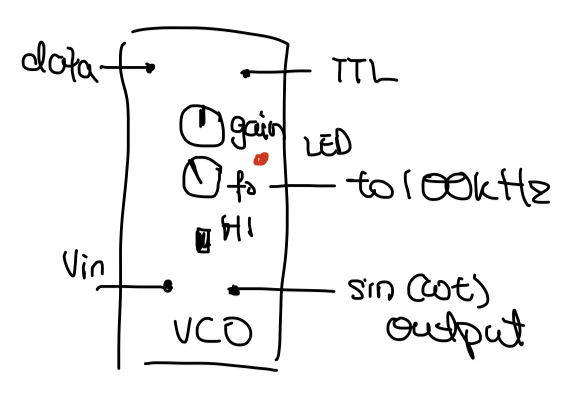 data
TTL
gain
LED
fo
to 100kHz
HI
Vin
sin (ωt)
output
VCO